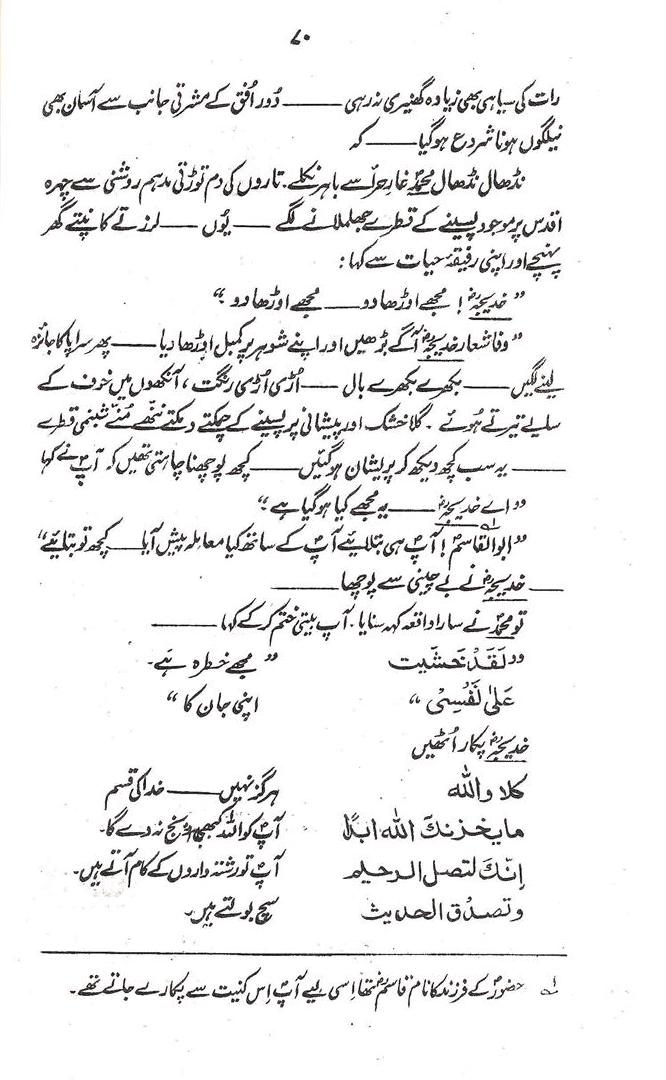 ۷۰
رات کی سیاہی بھی زیادہ گھنیری نہ رہی ——— دُور اُفق کے مشرقی جانب سے آسمان بھی
نیلگوں ہونا شروع ہوگیا —— کہ
نڈھال نڈھال محمدؐ غارِ حرا سے باہر نکلے۔ تاروں کی دم توڑتی مدہم روشنی سے چہرہ
اقدس پر موجود پسینے کے قطرے جھلملانے لگے —— یُوں —— لرزتے کانپتے گھر
پہنچے اور اپنی رفیقۂ حیات سے کہا:
”خدیجہؓ! مجھے اوڑھا دو —— مجھے اوڑھا دو۔“
”وفا شعار خدیجہؓ آگے بڑھیں اور اپنے شوہر پر کمبل اوڑھا دیا —— پھر سراپا کا جائزہ
لینے لگیں —— بکھرے بکھرے بال —— اُڑی اُڑی رنگت، آنکھوں میں خوف کے
سایے تیرتے ہُوئے۔ گلا خشک اور پیشانی پر پسینے کے چمکتے دمکتے ننھے مُنّے شبنمی قطرے
—— یہ سب کچھ دیکھ کر پریشان ہوگئیں —— کچھ پوچھنا چاہتی تھیں کہ آپؐ نے کہا
”اے خدیجہؓ —— یہ مجھے کیا ہوگیا ہے۔“
”ابوالقاسمؐ ؎۱! آپؐ ہی بتلایئے آپؐ کے ساتھ کیا معاملہ پیش آیا —— کچھ تو بتایئے“
—— خدیجہؓ نے بے چینی سے پوچھا ——
تو محمدؐ نے سارا واقعہ کہہ سنایا۔ آپ بیتی ختم کرکے کہا ——
”لَقَدْ خَشَیت ”مجھے خطرہ ہے۔
عَلیٰ نَفْسِیْ“ اپنی جان کا“
خدیجہؓ پکار اُٹھیں
کلا واللہ ہرگز نہیں —— خدا کی قسم
مایخزنکَ اللہ ابدًا آپؐ کو اللہ کبھی رنج نہ دے گا۔
اِنّکَ لتصل الرحیم آپؐ تو رشتہ داروں کے کام آتے ہیں۔
وتصدُق الحدیث سچ بولتے ہیں۔
؎۱ حضورؐ کے فرزند کا نام قاسمؓ تھا اِسی لیے آپؐ اِس کنیت سے پکارے جاتے تھے۔